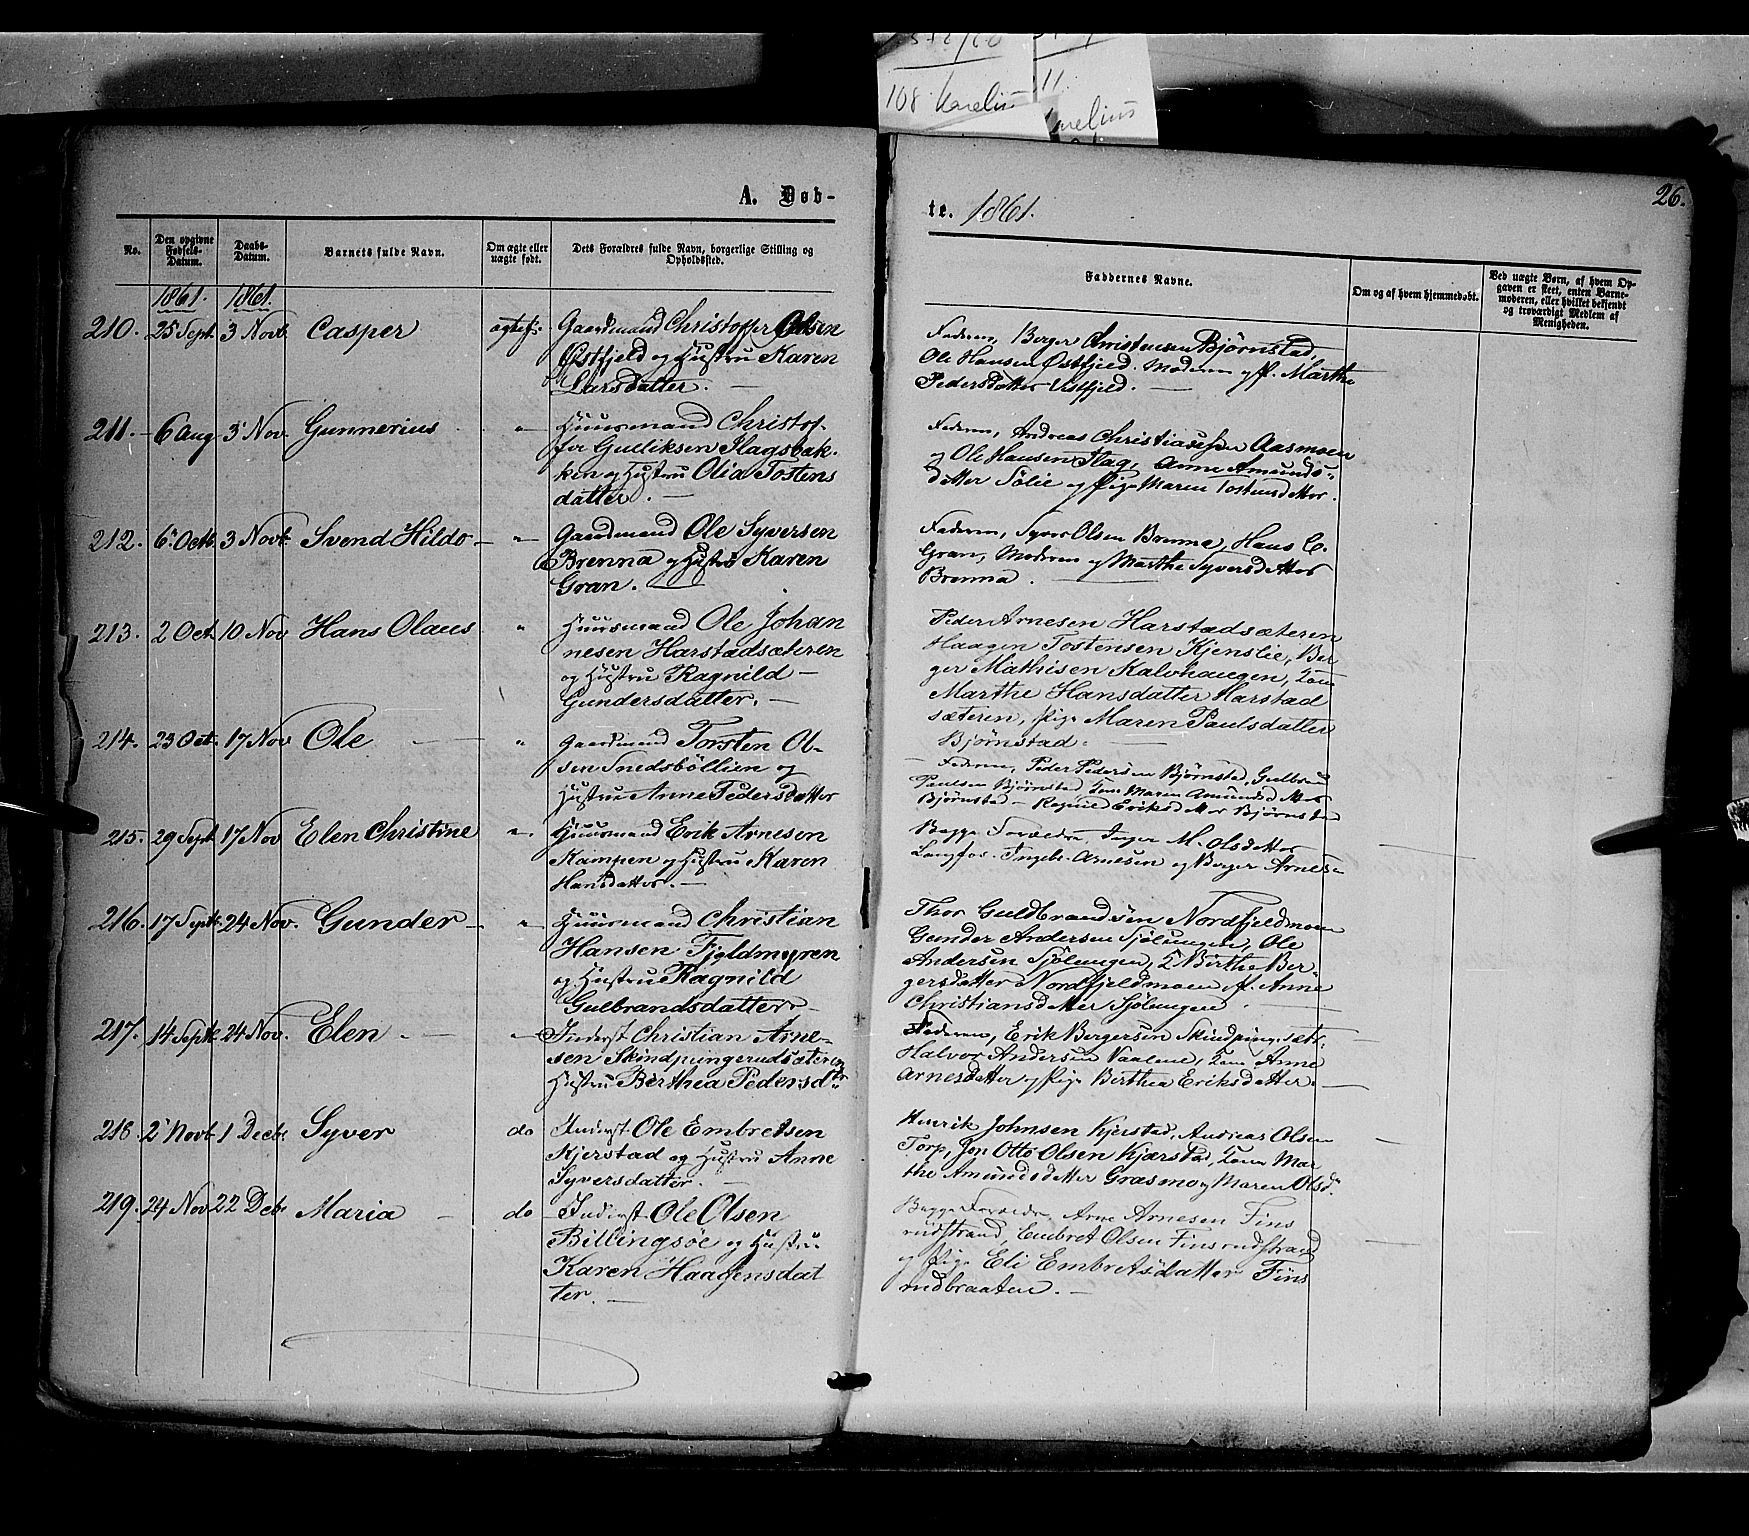 108. Karelius
11.
nelius
A. Døb-
te. 1861.
26.
No.
Den opgivne Fødsels-Datum.
Daabs-Datum.
Barnets fulde Navn.
Om ægte eller uægte født.
Dets Forældres fulde Navn, borgerlige Stilling og Opholdssted.
Faddernes Navne.
Om og af hvem hjemmedøbt.
Ved uægte Børn, af hvem Op-
gaven er skeet, enten Barne-
moderen, eller hvilket bekjendt
og troværdigt Medlem af
Menigheden.
1861. 1861.
210. 25 Sept. 3 Novb. Casper ægtef: Gaardmand Christopher Olsen
Østfjeld og Hustru Karen
Larsdatter. —
Faderen, Berger Christensen Bjørnstad,
Ole Hansen Østfjeld. Moderen og P. Marthe
Pedersdatter Vestfjeld. —
211. 6 Aug 3 Nov. Gunnerius " Huusmand Christof-
fer Gulliksen Flagsbak-
ken og Hustru Olia Tostens
datter. —
Faderen, Andreas Christiansen Aasmoen
og Ole Hansen Flag, Anne Amunds-
datter Sølie og Pige Maren Tostensdatter.
212. 6 Octb. 3 Novb. Svend Hildo — " Gaardmand Ole Syversen
Brenna og Hustru Karen
Gran. —
Faderen, Syver Olsen Brenna, Hans C.
Gran, Moderen og Marthe Syversdatter
Brenna. —
213. 2 Oct. 10 Nov Hans Olaus " Huusmand Ole Johan
nesen Harstadsæteren
og Hustru Ragnild —
Gundersdatter. —
Peder Arnesen Harstadsæteren
Haagen Tostensen Kjenslie, Ber
ger Mathisen Kalvhaugen, Kone
Marthe Hansdatter Harstad
sæteren, Pige Maren Paulsdatter
Bjørnstad. —
214. 23 Oct. 17 Nov Ole — " Gaardmand Torsten Ol-
sen Snedsböllien og
Hustru Anne Pedersdatter
Faderen, Peder Pedersen Bjørnstad, Gulbrand
Paulsen Bjørnstad Kone Maren Amundsdatter
Bjørnstad — Ragnild Eriksdatter Bjørnstad
215. 29 Sept 17 Nov Elen Christine " Huusmand Erik Arnesen
Kampen og Hustru Karen
Hansdatter. —
Begge Forældre, Inger M. Olsdatter
Langfos. Ingebr. Arnesen og Berger Arnes-
216. 17 Septb 24 Nov. Gunder — " Huusmand Christian
Hansen Fjeldmyren
og Hustru Ragnild
Gulbrandsdatter —
Thor Guldbrandsen Nordfjeldmoen
Gunder Andersen Sjølungen, Ole
Andersen Sjølungen, K Birthe Ber-
gersdatter Nordfjeldmoen P. Anne
Christiansdatter Sjølungen.
217. 14 Septb 24 Nov. Elen — " Inderst Christian Arne-
sen Skindpungerudsæteren
Hustru Berthea Pedersdtr
Faderen, Erik Bergersen Skindpungsæt.
Halvor Andersen Vaalene, Kone Anne
Arnesdatter og Pige Berthea Eriksdatter. —
218. 2 Novb 1 Decb. Syver do Inderst Ole Embretsen
Kjerstad og Hustru Anne
Syversdatter. —
Henrik Johnsen Kjerstad, Andreas Olsen
Torp, Jon Otto Olsen Kjærstad, Kone Mar
the Amundsdatter Grasmo og Maren Olsd.
219. 24 Nov 22 Deb. Maria — do Inderst Ole Olsen
Billingsøe og Hustru
Karen Haagensdat
ter. —
Begge Forældre, Arne Arnesen Fins
rudstrand, Embret Olsen Finsrudstrand
og Pige Eli Embretsdatter Fins
rudbraaten. —